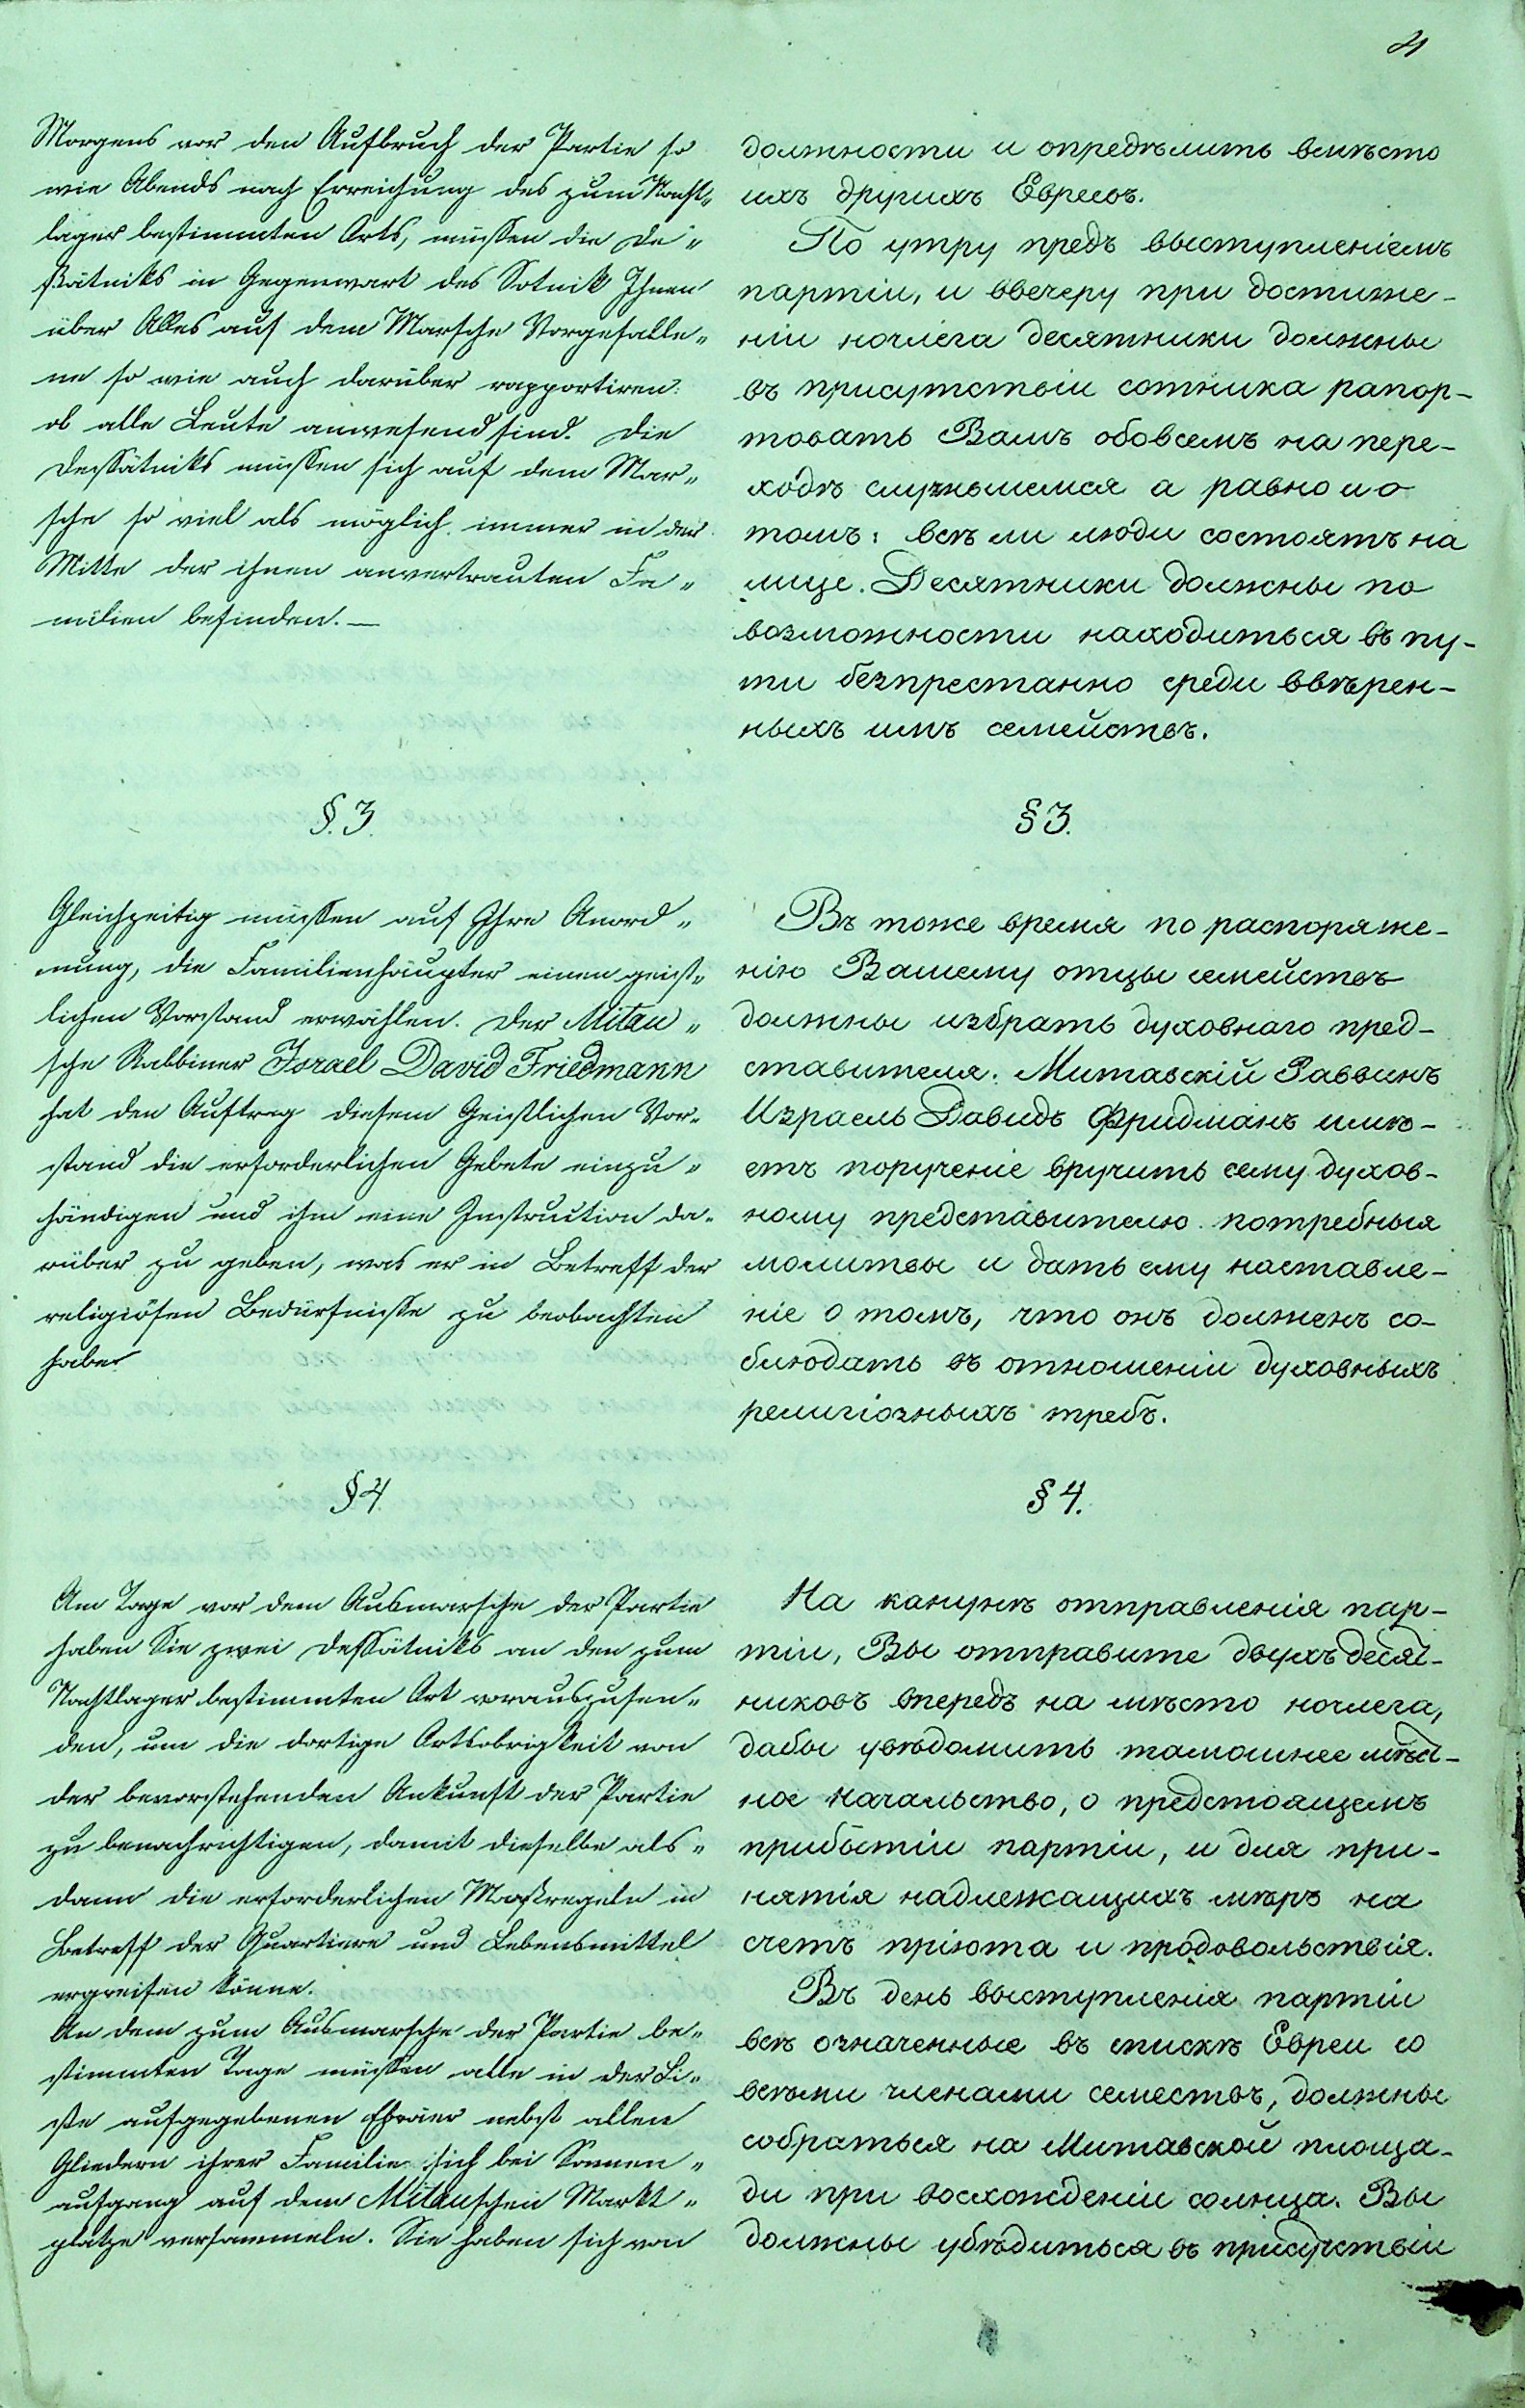 Morgens vor den Aufbruch der Partie so
wie Abends nach Erreichung des zum Nacht„
lager bestimmten Orts, müssen die De„
ßätniks in Gegenwart des Sotnik Ihnen
über Alles auf dem Marsche Vorgefalle„
ne so wie auch darüber rapportiren:
ob alle Leute anwesend sind. Die
Dessätniks müssen sich auf dem Mar„
sche so viel als möglich immer in der
Mitte der ihnen anvertrauten Fa„
milien befinden. —
§. 3.
Gleichzeitig müssen auf Ihre Anord„
nung, die Familienhäupter einen geist„
lichen Vorstand erwählen. Der Mitau„
sche Rabbiner Israel David Friedmann
hat den Auftrag diesem Geistlichen Vor„
stand die erforderlichen Gebete einzu„
händigen und ihm eine Instruction da„
rüber zu geben, was er in Betreff der
religiösen Bedürfnisse zu beobachten
habe
§ 4
Am Tage vor dem Ausmarsche der Partie
haben Sie zwei Dessätniks an den zum
Nachtlager bestimmten Ort vorauszusen„
den, um die dortige Ortsobrigkeit von
der bevorstehenden Ankunft der Partie
zu benachrichtigen, damit dieselbe als„
dann die erforderlichen Maßregeln in
Betreff der Quartiere und Lebensmittel
ergreifen könne.
An dem zum Ausmarsche der Partie be„
stimmten Tage müssen alle in der Li„
ste aufgegebenen Ebräer nebst allen
Gliedern ihrer Familie sich bei Sonnen„
aufgang auf dem Mitauschen Markt„
platze versammeln. Sie haben sich von
должности и опредѣлить вмѣсто
ихъ другихъ Евреевъ.
По утру предъ выступленіемъ
партіи, и ввечеру при достиже-
ніи ночлега десятники должны
въ присутствіи сотника рапор-
товать Вамъ обовсемъ на пере-
ходѣ случившемся а равно и о
томъ: всѣ ли люди состоятъ на
лице. Десятники должны по
возможности находиться въ пу-
ти безпрестанно среди ввѣрен-
ныхъ имъ семействъ.
§ 3.
Въ тоже время по распоряже-
нію Вашему отцы семействъ
должны избрать духовнаго пред-
ставителя. Митавскій Раввинъ
Израель Давидъ Фридманъ имѣ-
етъ порученіе вручить сему духов-
ному представителю потребныя
молитвы и дать ему наставле-
ніе о томъ, что онъ долженъ со-
блюдать въ отношеніи духовныхъ
религіозныхъ требъ.
§ 4.
На канунѣ отправленія пар-
тіи, Вы отправите двухъ десят-
никовъ впередъ на мѣсто ночлега,
дабы увѣдомить тамошнее мѣст-
ное начальство, о предстоящемъ
прибытіи партіи, и для при-
нятія надлежащихъ мѣръ на
счетъ пріюта и продовольствія.
Въ день выступленія партіи
всѣ означенные въ спискѣ Евреи со
всѣми членами семествъ, должны
собраться на Митавской площа-
ди при восхожденіи солнца. Вы
должны убѣдиться въ присутствіи